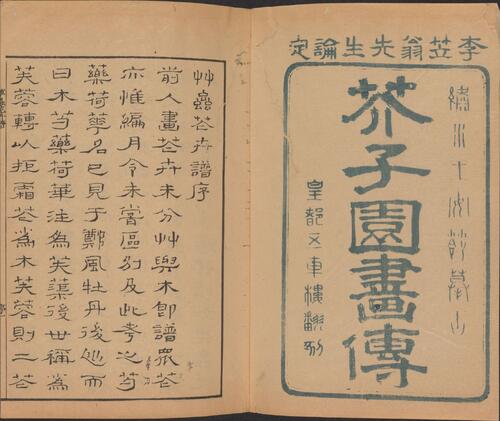 李笠翁先生論定
芥子園畫傳
皇都五車樓翻刻
艸蟲花卉譜序
前人畫花卉未分艸與木即譜眾花
亦惟編月令未嘗區别及此考之芍
藥荷華名已見于鄭風牡丹後出而
曰木芍藥荷華注為芙蕖後世稱為
芙蓉轉以拒霜花為木芙蓉則二花